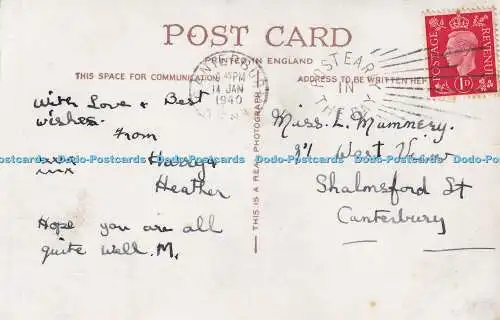 POST CARD
PRINTED IN ENGLAND
THIS SPACE FOR COMMUNICATION
ADDRESS TO BE WRITTEN HERE
POSTAGE
REVENUE
1D
PM
14 JAN
1940
POST EARLY
IN
THE DAY
With Love & Best
wishes.
From
Harry &
Heather
Hope you are all
quite well. M.
THIS IS A REAL PHOTOGRAPH
Miss. L. Mummery.
West View
Shalmsford St
Canterbury
Postcards Data-Postcards Data-Postcards Data-Postcards Data-Postcards Data-Postcards